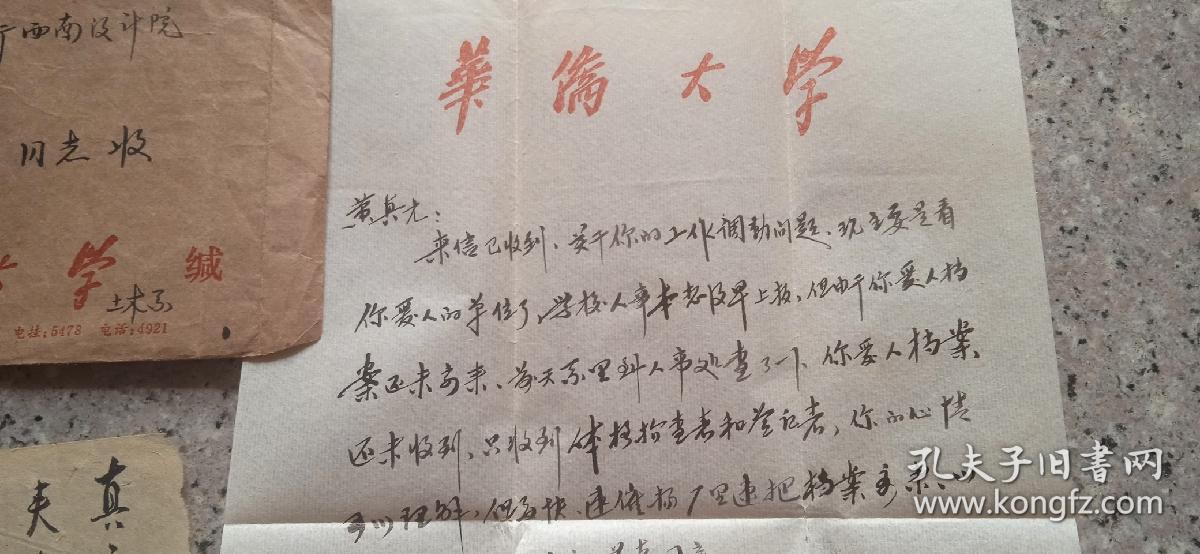 广西南设计院
同志收
学 缄
土木系
电挂:5478 电话:4921
夫 真
華僑大学
黄真尤:
来信已收到、关于你的工作调动问题、现主要是看
你爱人的单位了、学校人事本想及早上报、但由于你爱人档
案还未寄来、前天系里到人事处查了一下、你爱人档案
还未收到、只收到体格检查表和登记表, 你的心情
可以理解, 但要快速催杨厂里速把档案寄来、以
孔夫子旧书网
www.kongfz.com